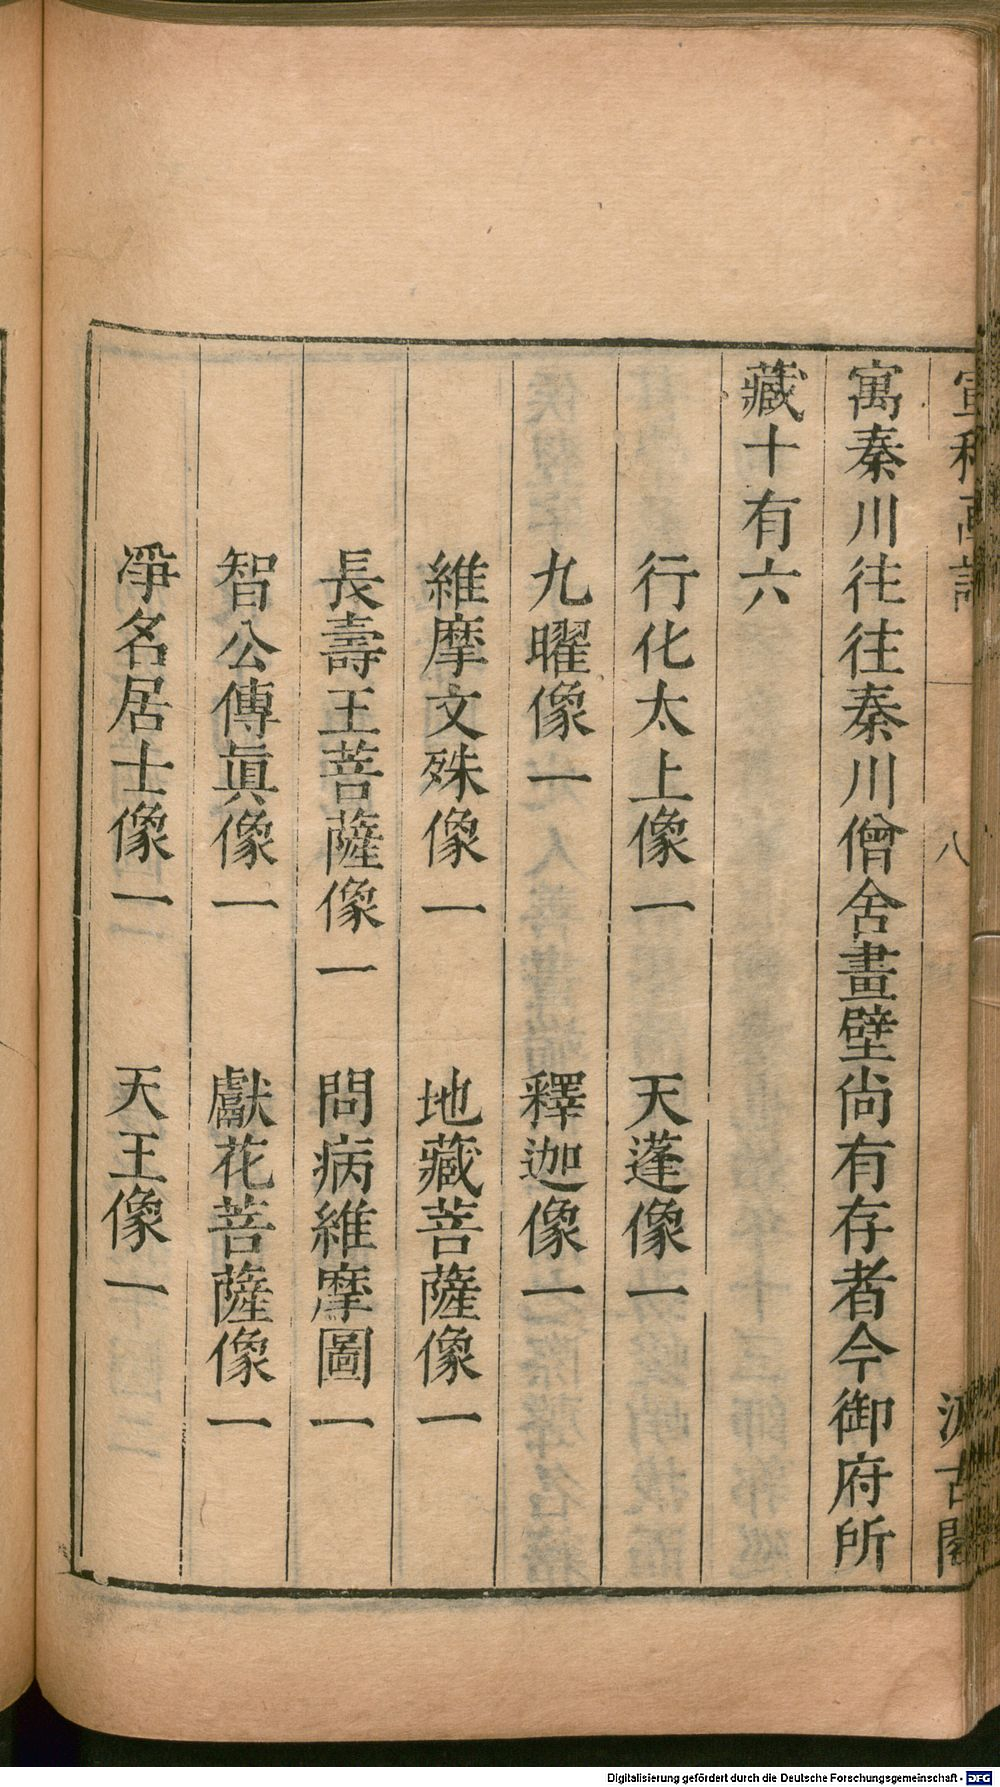 宣和画譜 八 汲古閣
寓秦川徃徃秦川僧舍畫壁尚有存者今御府所
藏十有六
行化太上像一 天蓬像一
九曜像一 釋迦像一
維摩文殊像一 地藏菩薩像一
長壽王菩薩像一 問病維摩圖一
智公傳眞像一 獻花菩薩像一
淨名居士像一 天王像一
Digitalisierung gefördert durch die Deutsche Forschungsgemeinschaft - DFG